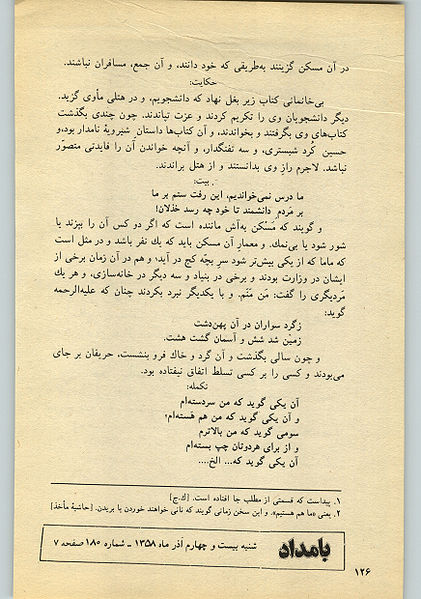 در آن مسکن گزینند به‌طریقی که خود دانند، و آن جمع، مسافران نباشند.
حکایت:
بی‌خانمانی کتاب زیر بغل نهاد که دانشجویم، و در هتلی مأوی گزید.
دیگر دانشجویان وی را تکریم کردند و عزت نهادند. چون چندی بگذشت
کتاب‌های وی بگرفتند و بخواندند، و آن کتاب‌ها داستان شیرویهٔ نامدار بود، و
حسین کُرد شبستری، و سه تفنگدار، و آنچه خواندن آن را فایدتی متصوّر
نباشد. لاجرم راز وی بدانستند و از هتل براندند.
بیت:
ما درس نمی‌خواندیم، این رفت ستم بر ما
بر مَردم دانشمند تا خود چه رسد خذلان!
و گویند که مَسْکن به‌آش ماننده است که اگر دو کس آن را بپزند یا
شور شود یا بی‌نمك. و معمار آن مسکن باید که یك نفر باشد و در مثل است
که ماما که از یکی بیش‌تر شود سر بچّه کج در آید؛ و هم در آن زمان برخی از
ایشان در وزارت بودند و برخی در بنیاد و سه دیگر در خانه‌سازی، و هر یك
مَردیگری را گفت: مَن مَنَم. و با یکدیگر نبرد بکردند چنان که علیه‌الرحمه
گوید:
زگرد سواران در آن پهن‌دشت
زمین شد شش و آسمان گشت هشت.
و چون سالی بگذشت و آن گرد و خاك فرو بنشست، حریفان بر جای
می‌بودند و کسی را بر کسی تسلط اتفاق نیفتاده بود.
تکمله:
آن یکی گوید که من سردسته‌ام
و آن یکی گوید که من هم هَسته‌ام؛
سومی گوید که من بالاترم
و از برای هردوتان چپ بسته‌ام
آن یکی گوید که... الخ....
۱. پیداست که قسمتی از مطلب جا افتاده است. [ك.ج]
۲. یعنی «ما هم هستیم». و این سخن زمانی گویند که نانی خواهند خوردن یا بریدن. [حاشیهٔ مأخذ]
بامداد شنبه بیست و چهارم آذر ماه ۱۳۵۸ ـ شماره ۱۸۰ صفحه ۷
۱۲۶